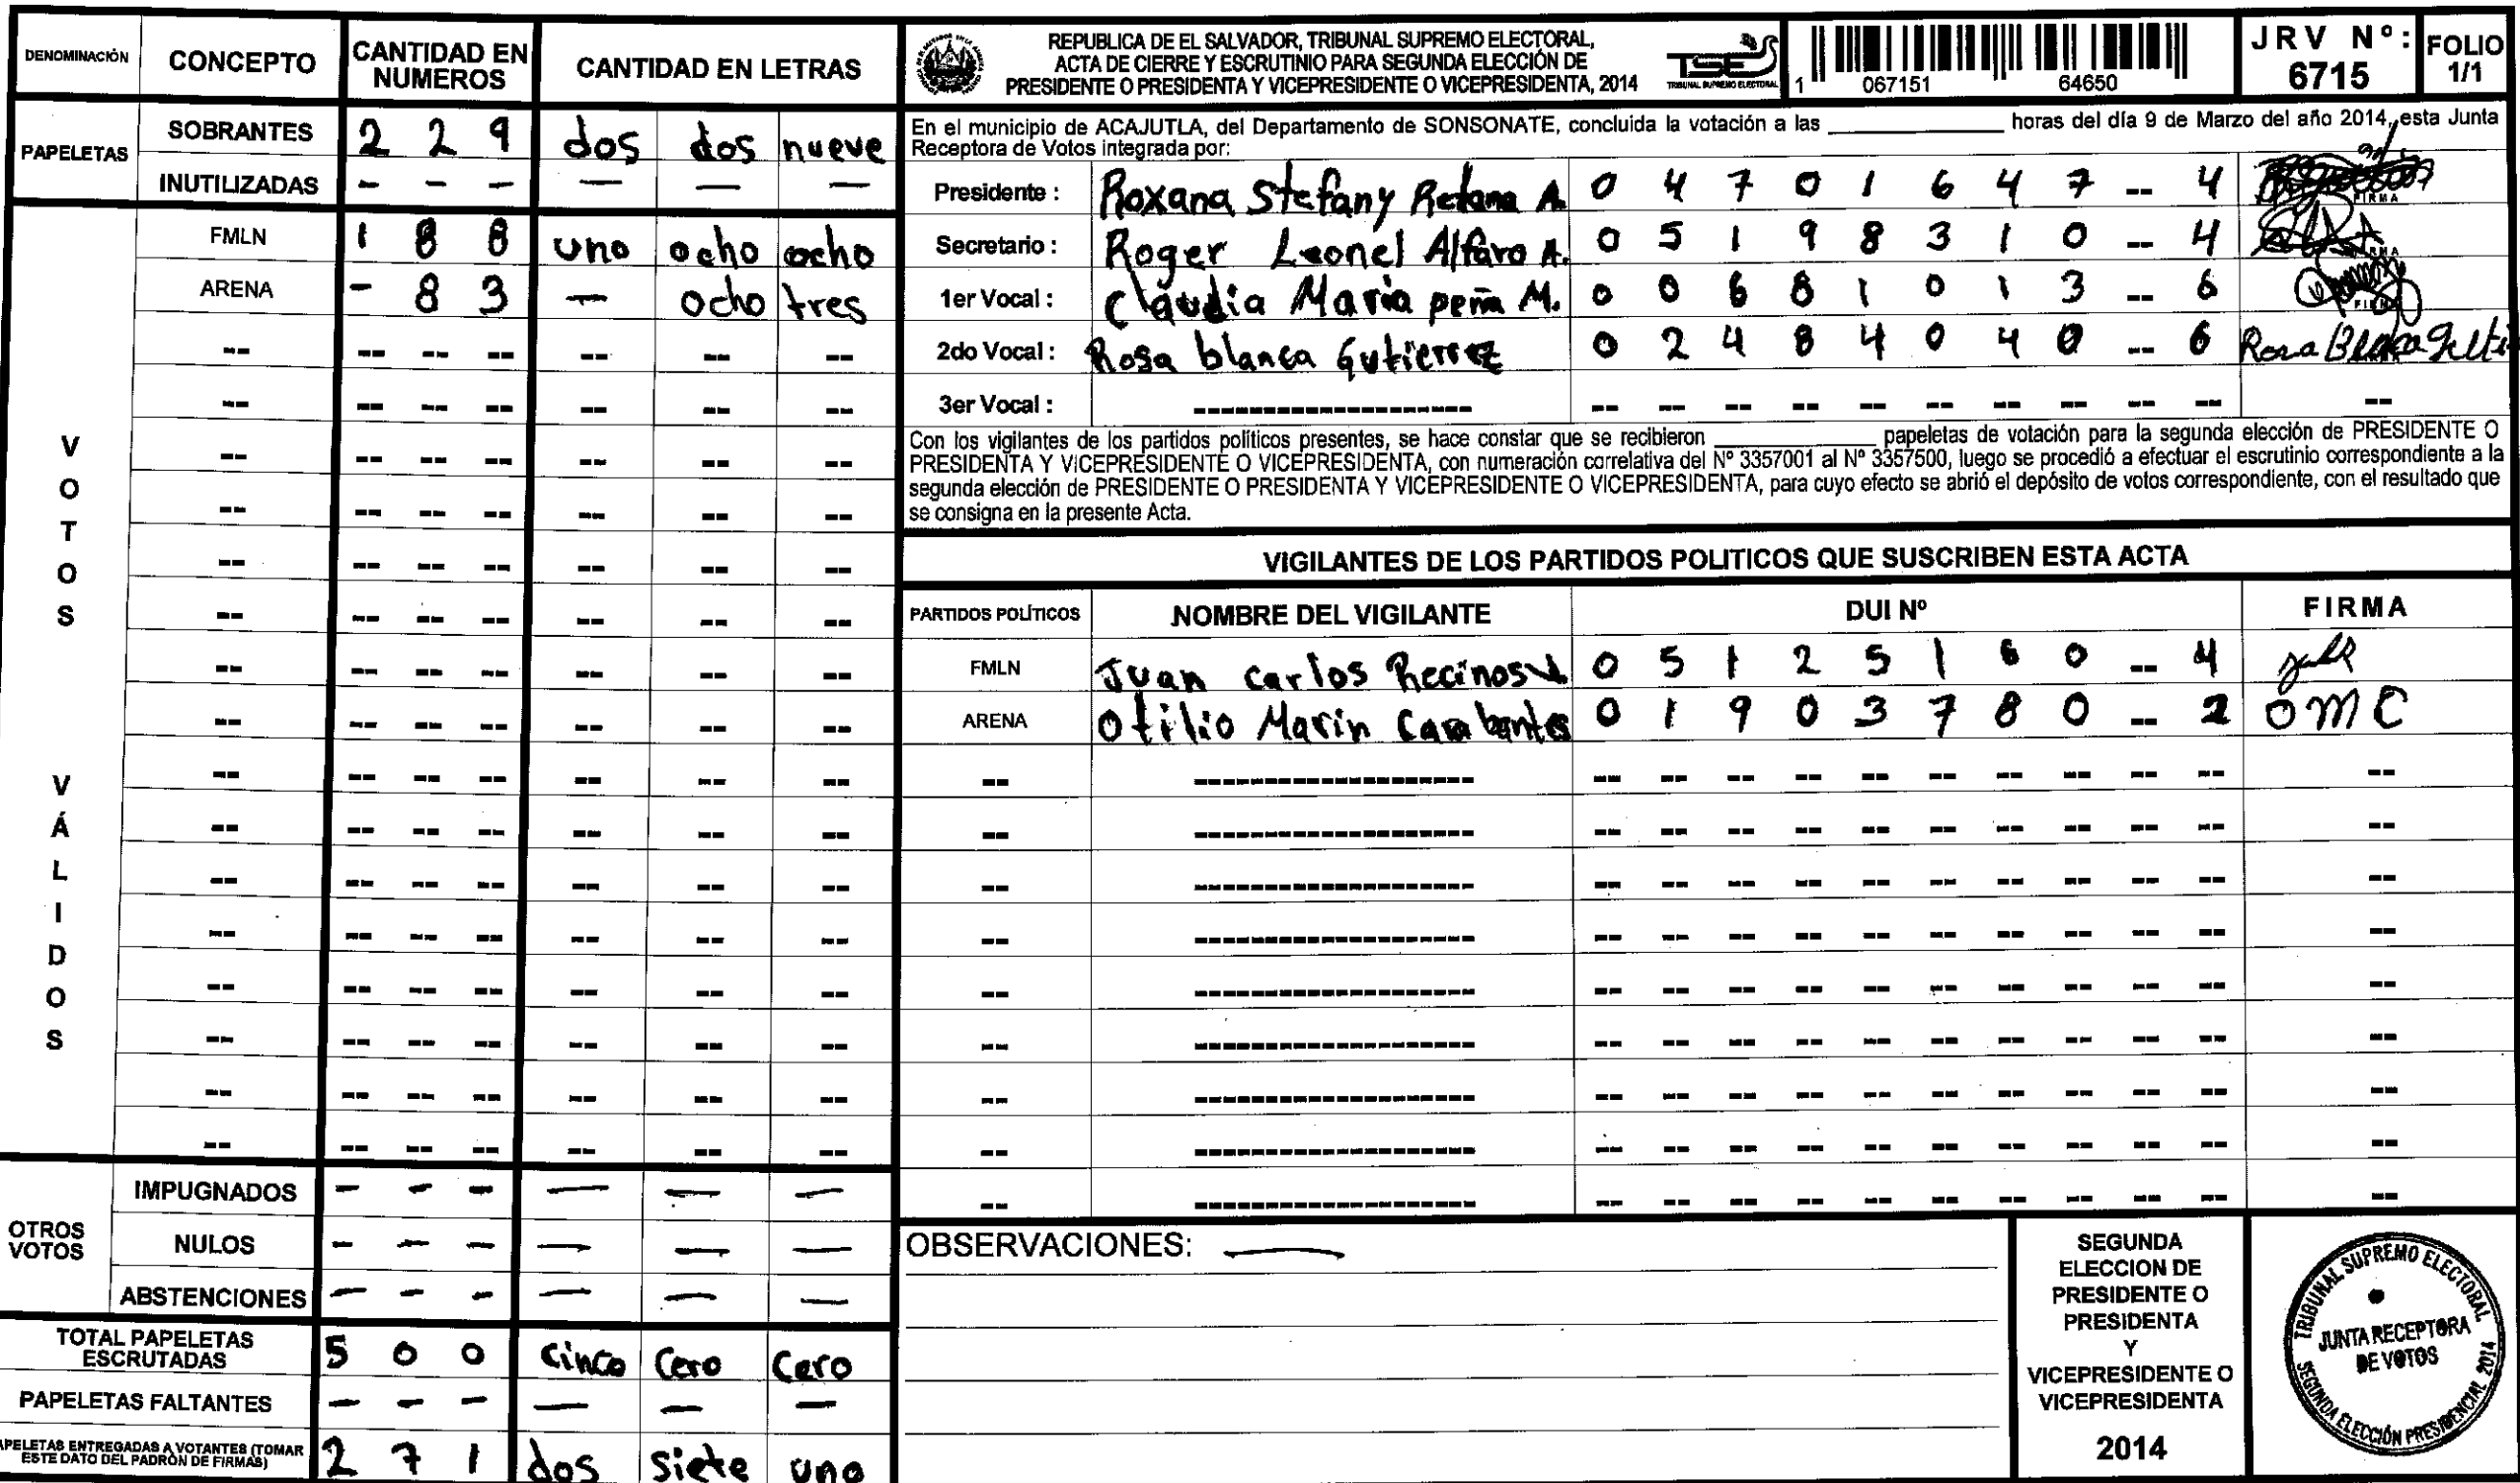 DENOMINACIÓN CONCEPTO CANTIDAD EN NUMEROS CANTIDAD EN LETRAS
PAPELETAS
SOBRANTES 2 2 9 dos dos nueve
INUTILIZADAS - - - — — —
VOTOS VÁLIDOS
FMLN 1 8 8 uno ocho ocho
ARENA - 8 3 — ocho tres
OTROS VOTOS
IMPUGNADOS - - - — — —
NULOS - - - — — —
ABSTENCIONES - - - — — —
TOTAL PAPELETAS ESCRUTADAS 5 0 0 cinco cero cero
PAPELETAS FALTANTES - - - — — —
PAPELETAS ENTREGADAS A VOTANTES (TOMAR ESTE DATO DEL PADRÓN DE FIRMAS) 2 7 1 dos siete uno
REPUBLICA DE EL SALVADOR, TRIBUNAL SUPREMO ELECTORAL,
ACTA DE CIERRE Y ESCRUTINIO PARA SEGUNDA ELECCIÓN DE
PRESIDENTE O PRESIDENTA Y VICEPRESIDENTE O VICEPRESIDENTA, 2014
TSE
TRIBUNAL SUPREMO ELECTORAL
1 067151 64650
JRV Nº: 6715
FOLIO 1/1
En el municipio de ACAJUTLA, del Departamento de SONSONATE, concluida la votación a las ________ horas del día 9 de Marzo del año 2014, esta Junta
Receptora de Votos integrada por:
Presidente : Roxana Stefany Retana A. 0 4 7 0 1 6 4 7 -- 4 FIRMA
Secretario : Roger Leonel Alfaro A. 0 5 1 9 8 3 1 0 -- 4
1er Vocal : Claudia Maria peña M. 0 0 6 8 1 0 1 3 -- 6
2do Vocal : Rosa blanca Gutierrez 0 2 4 8 4 0 4 0 -- 6 Rosa Blanca
3er Vocal :
Con los vigilantes de los partidos políticos presentes, se hace constar que se recibieron ________ papeletas de votación para la segunda elección de PRESIDENTE O
PRESIDENTA Y VICEPRESIDENTE O VICEPRESIDENTA, con numeración correlativa del Nº 3357001 al Nº 3357500, luego se procedió a efectuar el escrutinio correspondiente a la
segunda elección de PRESIDENTE O PRESIDENTA Y VICEPRESIDENTE O VICEPRESIDENTA, para cuyo efecto se abrió el depósito de votos correspondiente, con el resultado que
se consigna en la presente Acta.
VIGILANTES DE LOS PARTIDOS POLITICOS QUE SUSCRIBEN ESTA ACTA
PARTIDOS POLÍTICOS NOMBRE DEL VIGILANTE DUI Nº FIRMA
FMLN Juan carlos Recinos V. 0 5 1 2 5 1 6 0 -- 4
ARENA Otilio Marin Carabantes 0 1 9 0 3 7 8 0 -- 2 OMC
OBSERVACIONES: —
SEGUNDA
ELECCION DE
PRESIDENTE O
PRESIDENTA
Y
VICEPRESIDENTE O
VICEPRESIDENTA
2014
TRIBUNAL SUPREMO ELECTORAL
JUNTA RECEPTORA
DE VOTOS
SEGUNDA ELECCIÓN PRESIDENCIAL 2014